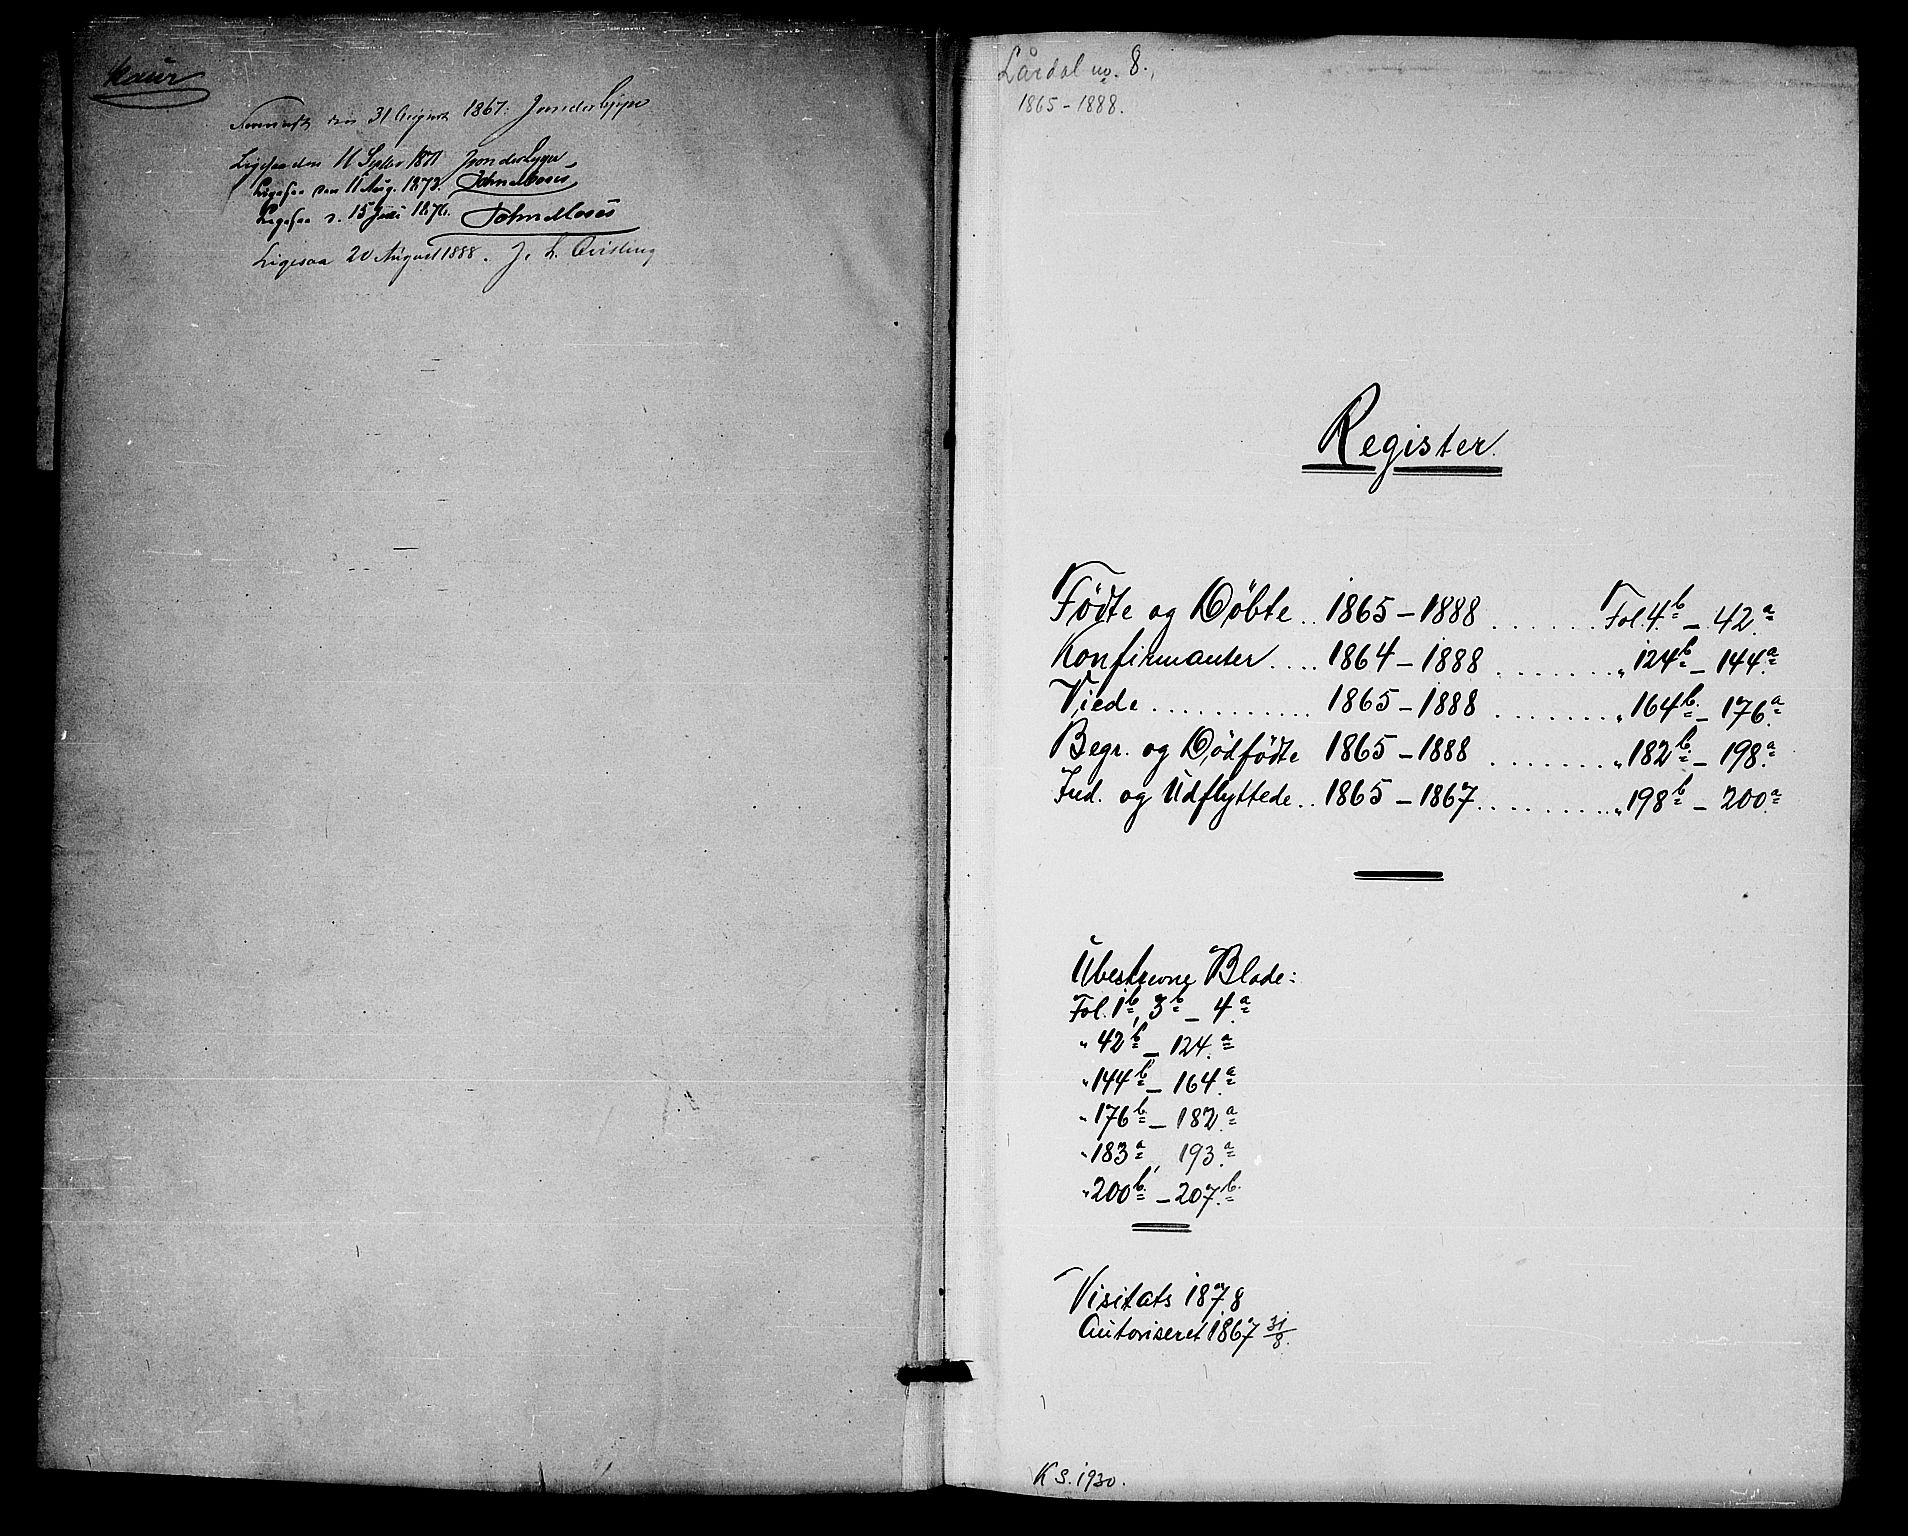 31 August 1867.
Ligesaa den 11 Septbr 1871
Ligesaa den 11 Aug. 1873. John Moses
Ligesaa d. 15 Juli 1876. John Moses
Ligesaa 20 August 1888. J. L. Qvisling
Lårdal nr. 8.
1865-1888.
Register.
Födte og Döbte .. 1865-1888 ....... Fol. 4.b - 42.a
Konfirmanter .... 1864-1888 ....... " 124b - 144.a
Viede ........... 1865-1888 ....... " 164b - 176.a
Begr. og Dödfödte 1865-1888 ....... " 182b - 198.a
Ind. og Udflyttede .. 1865-1867 ......... " 198b - 200a
Ubeskrevne Blade:
Fol. 1b, 3b - 4.a
" 42b - 124.a
" 144b - 164.a
" 176b - 182.a
" 183a, 193.a
" 200b - 207.b
Visitats 1878
Autoriseret 1867 31/8.
K S. 1930.